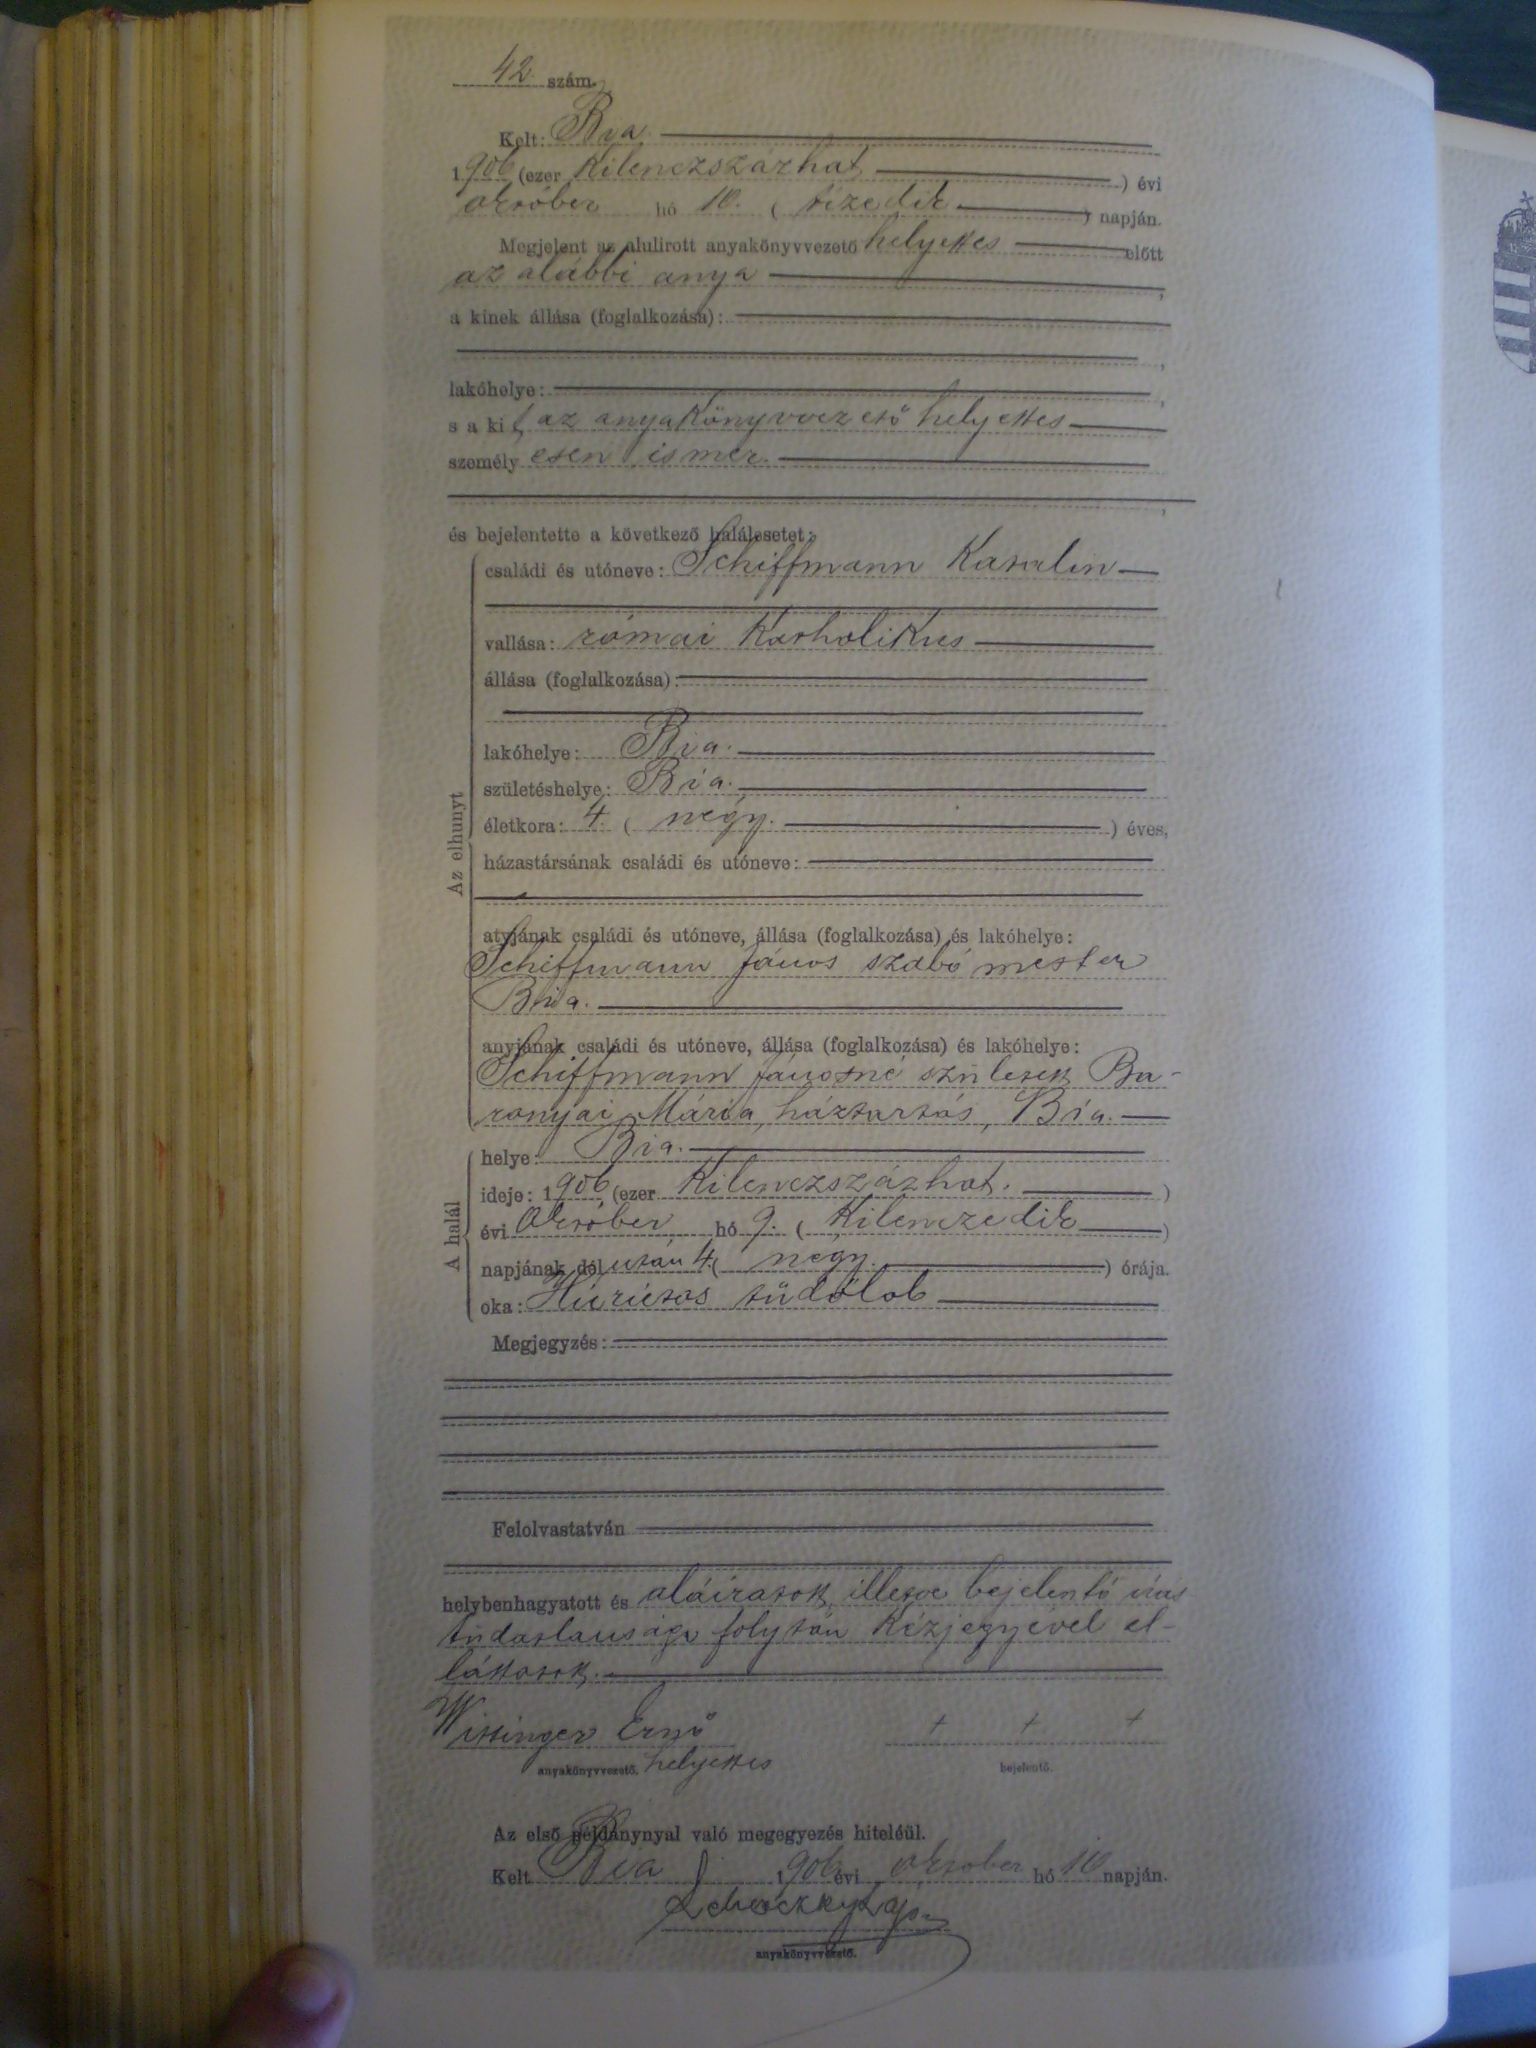 42. szám.
Kelt: Bia.
1906 (ezer kilenczszázhat ) évi
október hó 10. ( tizedik ) napján.
Megjelent az alulirott anyakönyvvezető helyettes előtt
az alábbi anya ,
a kinek állása (foglalkozása):
,
lakóhelye: ,
s a kit az anyakönyvvezető helyettes
személyesen ismer.
,
és bejelentette a következő halálesetet:
Az elhunyt
családi és utóneve: Schiffmann Katalin
vallása: római katholikus
állása (foglalkozása):
lakóhelye: Bia.
születéshelye: Bia.
életkora: 4. ( négy. ) éves,
házastársának családi és utóneve:
atyjának családi és utóneve, állása (foglalkozása) és lakóhelye:
Schiffmann János szabó mester
Bia.
anyjának családi és utóneve, állása (foglalkozása) és lakóhelye:
Schiffmann Jánosné született Ba-
ranyai Mária, háztartás, Bia.
A halál
helye: Bia.
ideje: 1906 (ezer kilenczszázhat. )
évi október hó 9. ( kilenczedik )
napjának dél után 4. ( négy. ) órája.
oka: Hurutos tüdőlob
Megjegyzés:
Felolvastatván
helybenhagyatott és aláiratott, illetve bejelentő irás
tudatlansága folytán kézjegyével el-
láttatott.
Wittinger Ernő + + +
anyakönyvvezető. helyettes bejelentő.
Az első példánynyal való megegyezés hiteléül.
Kelt Bia 1906 évi október hó 10 napján.
anyakönyvvezető.